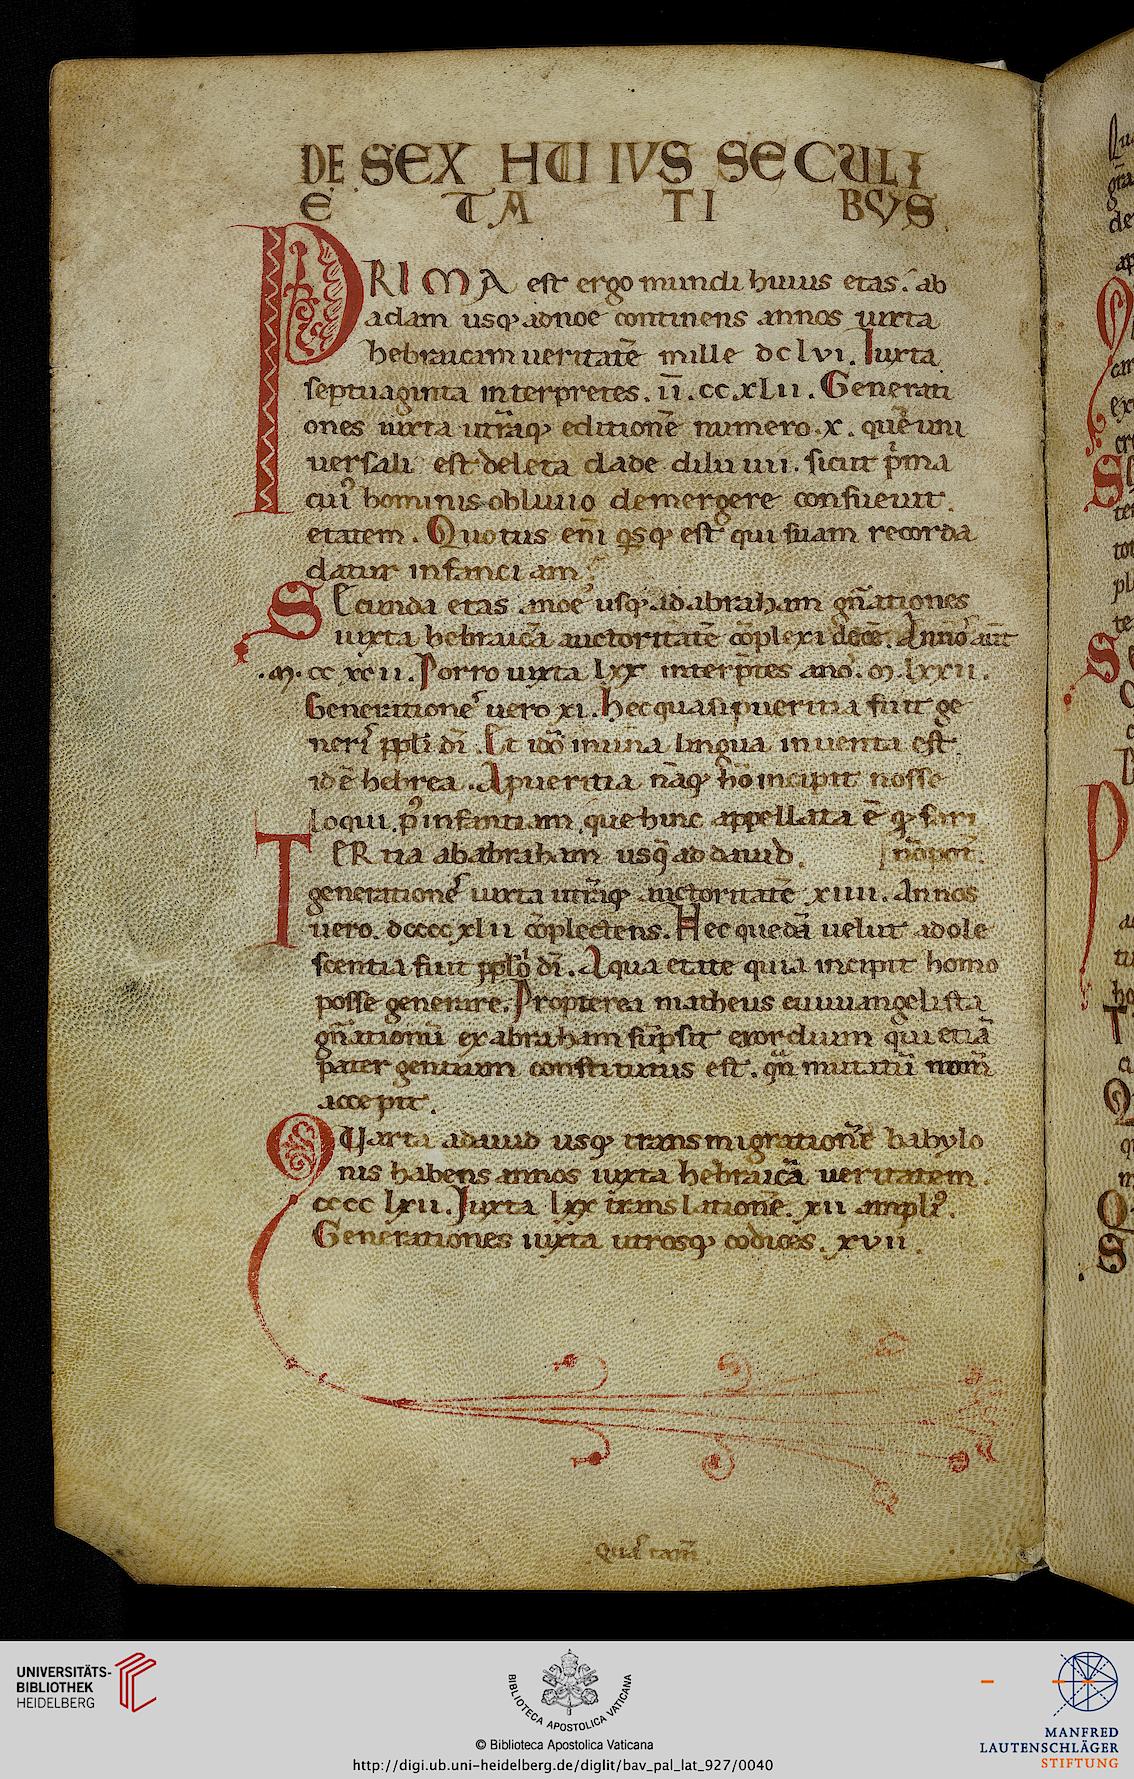 DE SEX HUIUS SECULI
ETATIBUS
PRIMA est ergo mundi huius etas. ab
adam usq; ad noe continens annos iuxta
hebraicam ueritatē mille dclvi. Iuxta
septuaginta interpretes. īī. cc.xLii. Generati
ones iuxta utrāq; editionē numero.x. quē uni
uersali est deleta clade diluuii. sicut pͥma
cuiꝰ hominis obliuio demergere consueuit.
etatem. Quotus enī qisq; est qui suam recorda
datur infanciam?
SEcunda etas anoe usq; ad abraham gn̄ationes
iuxta hebraicā auctoritatē cōplexa decē. Annoꝰ aūt
.M.cc xcii. Porro iuxta lxx interp̄tes anoꝰ. M. lxxii.
Generationeˢ uero xi. Hec quasi pueritia fuit ge
neriˢ ppl̄i dī. Et idō in una lingua inuenta est
id ē hebrea. Apueritia nāq; hō incipit nosse
loqui. pꝰ infantiam. que hinc appellata ē q; fari
TERtia ab abraham usq; ad dauid. [nōpot̄.
generationeˢ iuxta utrāq; auctoritatē xiiii. Annos
uero. dcccc xlii cōplectens. Hec quedā uelut adole
scentia fuit ppl̄i dī. Aqua etate quia incipit homo
posse generare. Propterea matheus euuuangelista
gn̄ationū ex abraham sūpsit exordium qui etiā
pater gentium constitutus est. qn̄ mutatū nom̄
accepit.
QUarta adauid usq; transmigrationē babylo
nis habens annos iuxta hebraicā ueritatem.
cccc lxii. Iuxta lxx translationē. xii ampliꝰ.
Generationes iuxta utrosq; codices. xvii.
UNIVERSITÄTS-
BIBLIOTHEK
HEIDELBERG
BIBLIOTECA APOSTOLICA VATICANA
© Biblioteca Apostolica Vaticana
http://digi.ub.uni-heidelberg.de/diglit/bav_pal_lat_927/0040
MANFRED
LAUTENSCHLÄGER
STIFTUNG